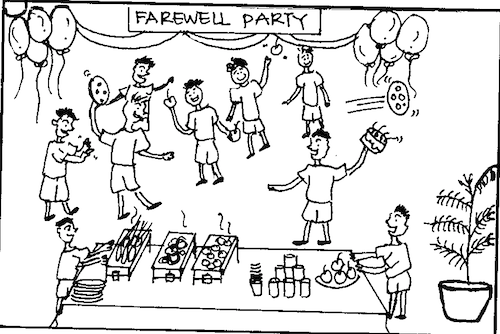 FAREWELL PARTY